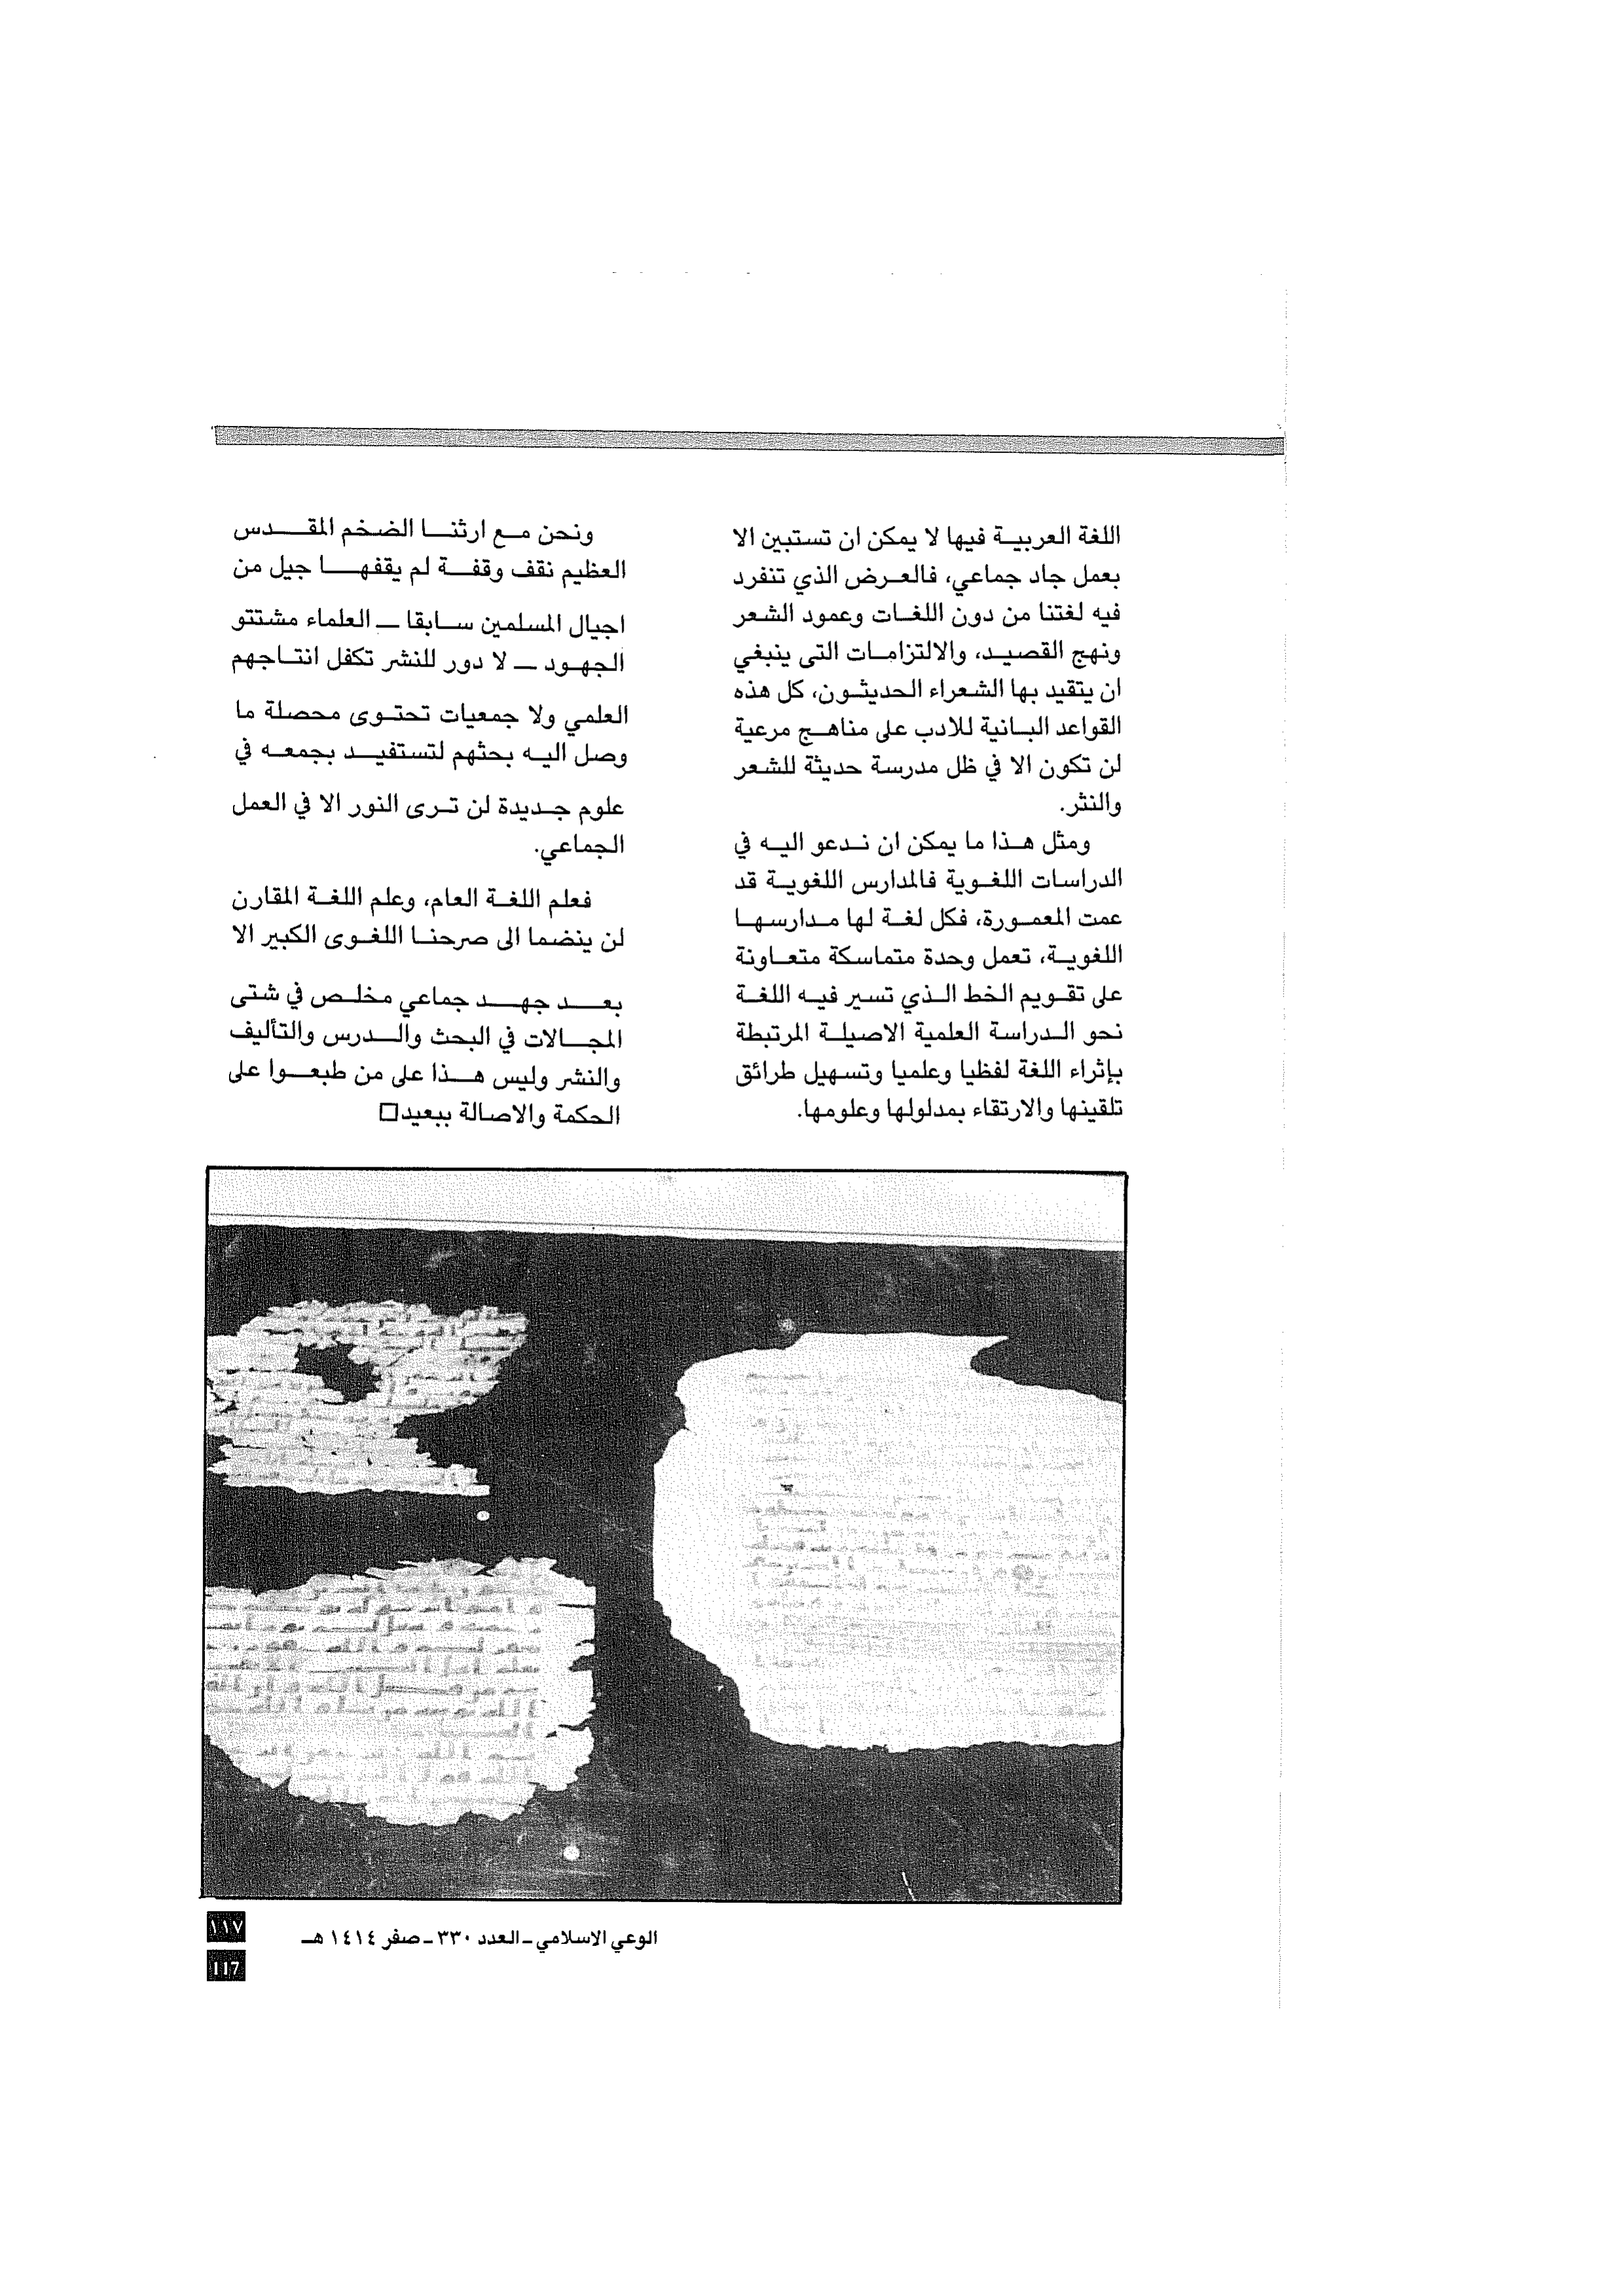 اللغة العربية فيها لا يمكن ان تستبين الا
بعمل جاد جماعي، فالعرض الذي تنفرد
فيه لغتنا من دون اللغات وعمود الشعر
ونهج القصيد، والالتزامات التى ينبغي
ان يتقيد بها الشعراء الحديثون، كل هذه
القواعد البانية للادب على مناهج مرعية
لن تكون الا في ظل مدرسة حديثة للشعر
والنثر.
ومثل هذا ما يمكن ان ندعو اليه في
الدراسات اللغوية فالمدارس اللغوية قد
عمت المعمورة، فكل لغة لها مدارسها
اللغوية، تعمل وحدة متماسكة متعاونة
على تقويم الخط الذي تسير فيه اللغة
نحو الدراسة العلمية الاصيلة المرتبطة
بإثراء اللغة لفظيا وعلميا وتسهيل طرائق
تلقينها والارتقاء بمدلولها وعلومها.
ونحن مع ارثنا الضخم المقدس
العظيم نقف وقفة لم يقفها جيل من
اجيال المسلمين سابقا ـ العلماء مشتتو
الجهود ـ لا دور للنشر تكفل انتاجهم
العلمي ولا جمعيات تحتوى محصلة ما
وصل اليه بحثهم لتستفيد بجمعه في
علوم جديدة لن ترى النور الا في العمل
الجماعي.
فعلم اللغة العام، وعلم اللغة المقارن
لن ينضما الى صرحنا اللغوى الكبير الا
بعد جهد جماعي مخلص في شتى
المجالات في البحث والدرس والتأليف
والنشر وليس هذا على من طبعوا على
الحكمة والاصالة ببعيد□
الوعي الاسلامي ـ العدد ٣٣٠ ـ صفر ١٤١٤ هـ
١١٧
117